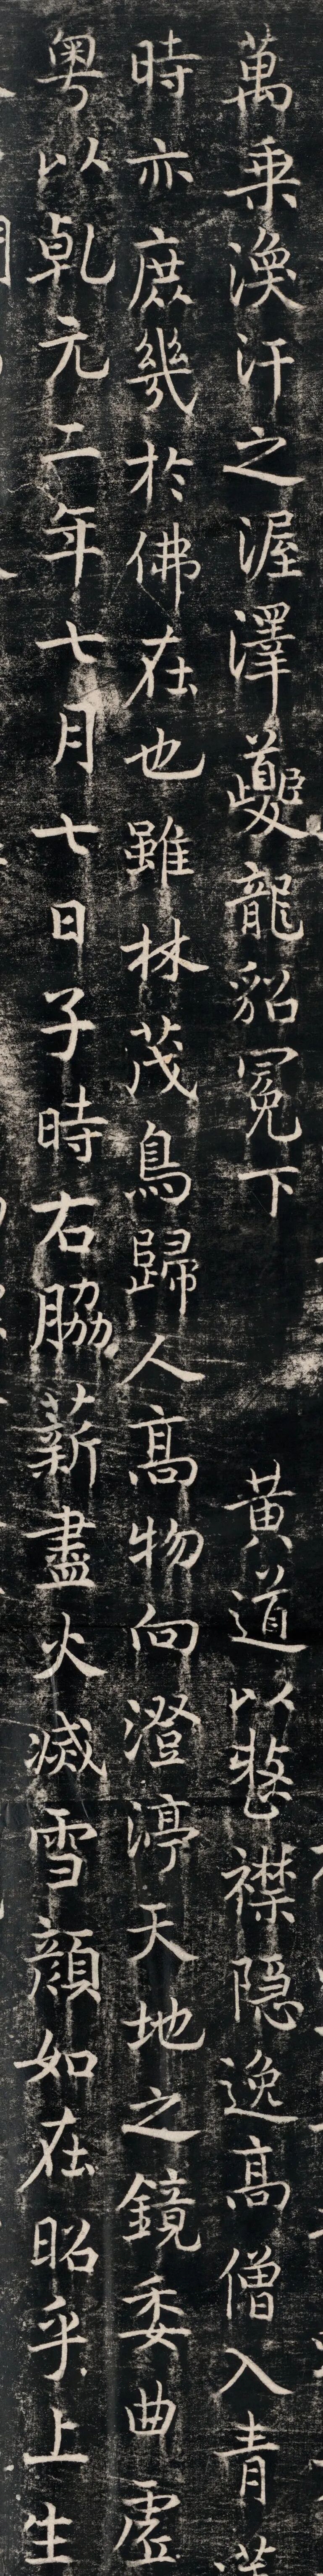 萬乘渙汗之渥澤夔龍貂冕下　黃道以整襟隱逸高僧入青
時亦庶幾於佛在也雖林茂鳥歸人高物向澄渟天地之鏡委曲虛
粵以乹元二年七月七日子時右脇薪盡火滅雪顏如在昭乎上生